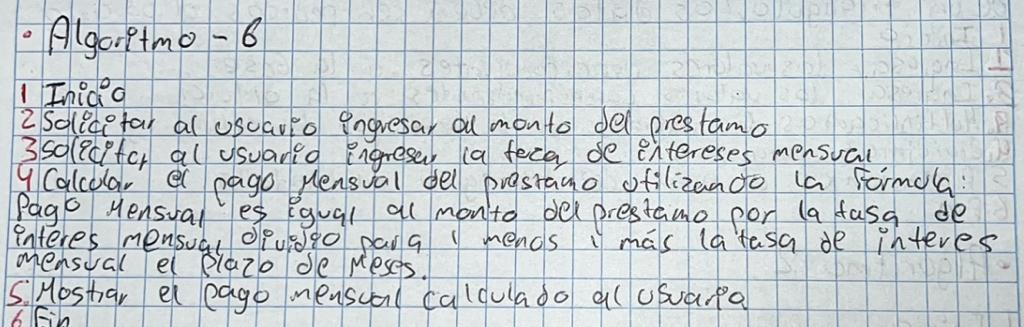 • Algoritmo - 6
1 Inicio
2 Solicitar al usuario ingresar al monto del prestamo
3 solicitar al usuario ingresar la teca de intereses mensual
4 Calcular el pago Mensual del prestamo utilizando la fórmula:
Pago Mensual es igual al monto del prestamo por la tasa de
interes mensual dividio para 1 menos 1 más la tasa de interes
mensual el plazo de Meses.
5. Mostrar el pago mensual calculado al usuario
6 Fin